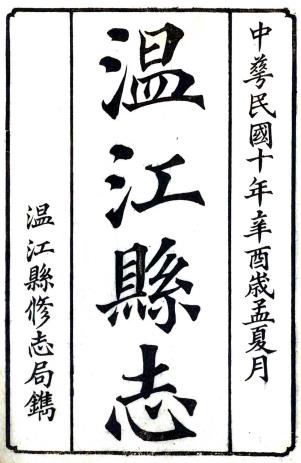 中華民國十年辛酉歲孟夏月
温江縣志
温江縣修志局鐫